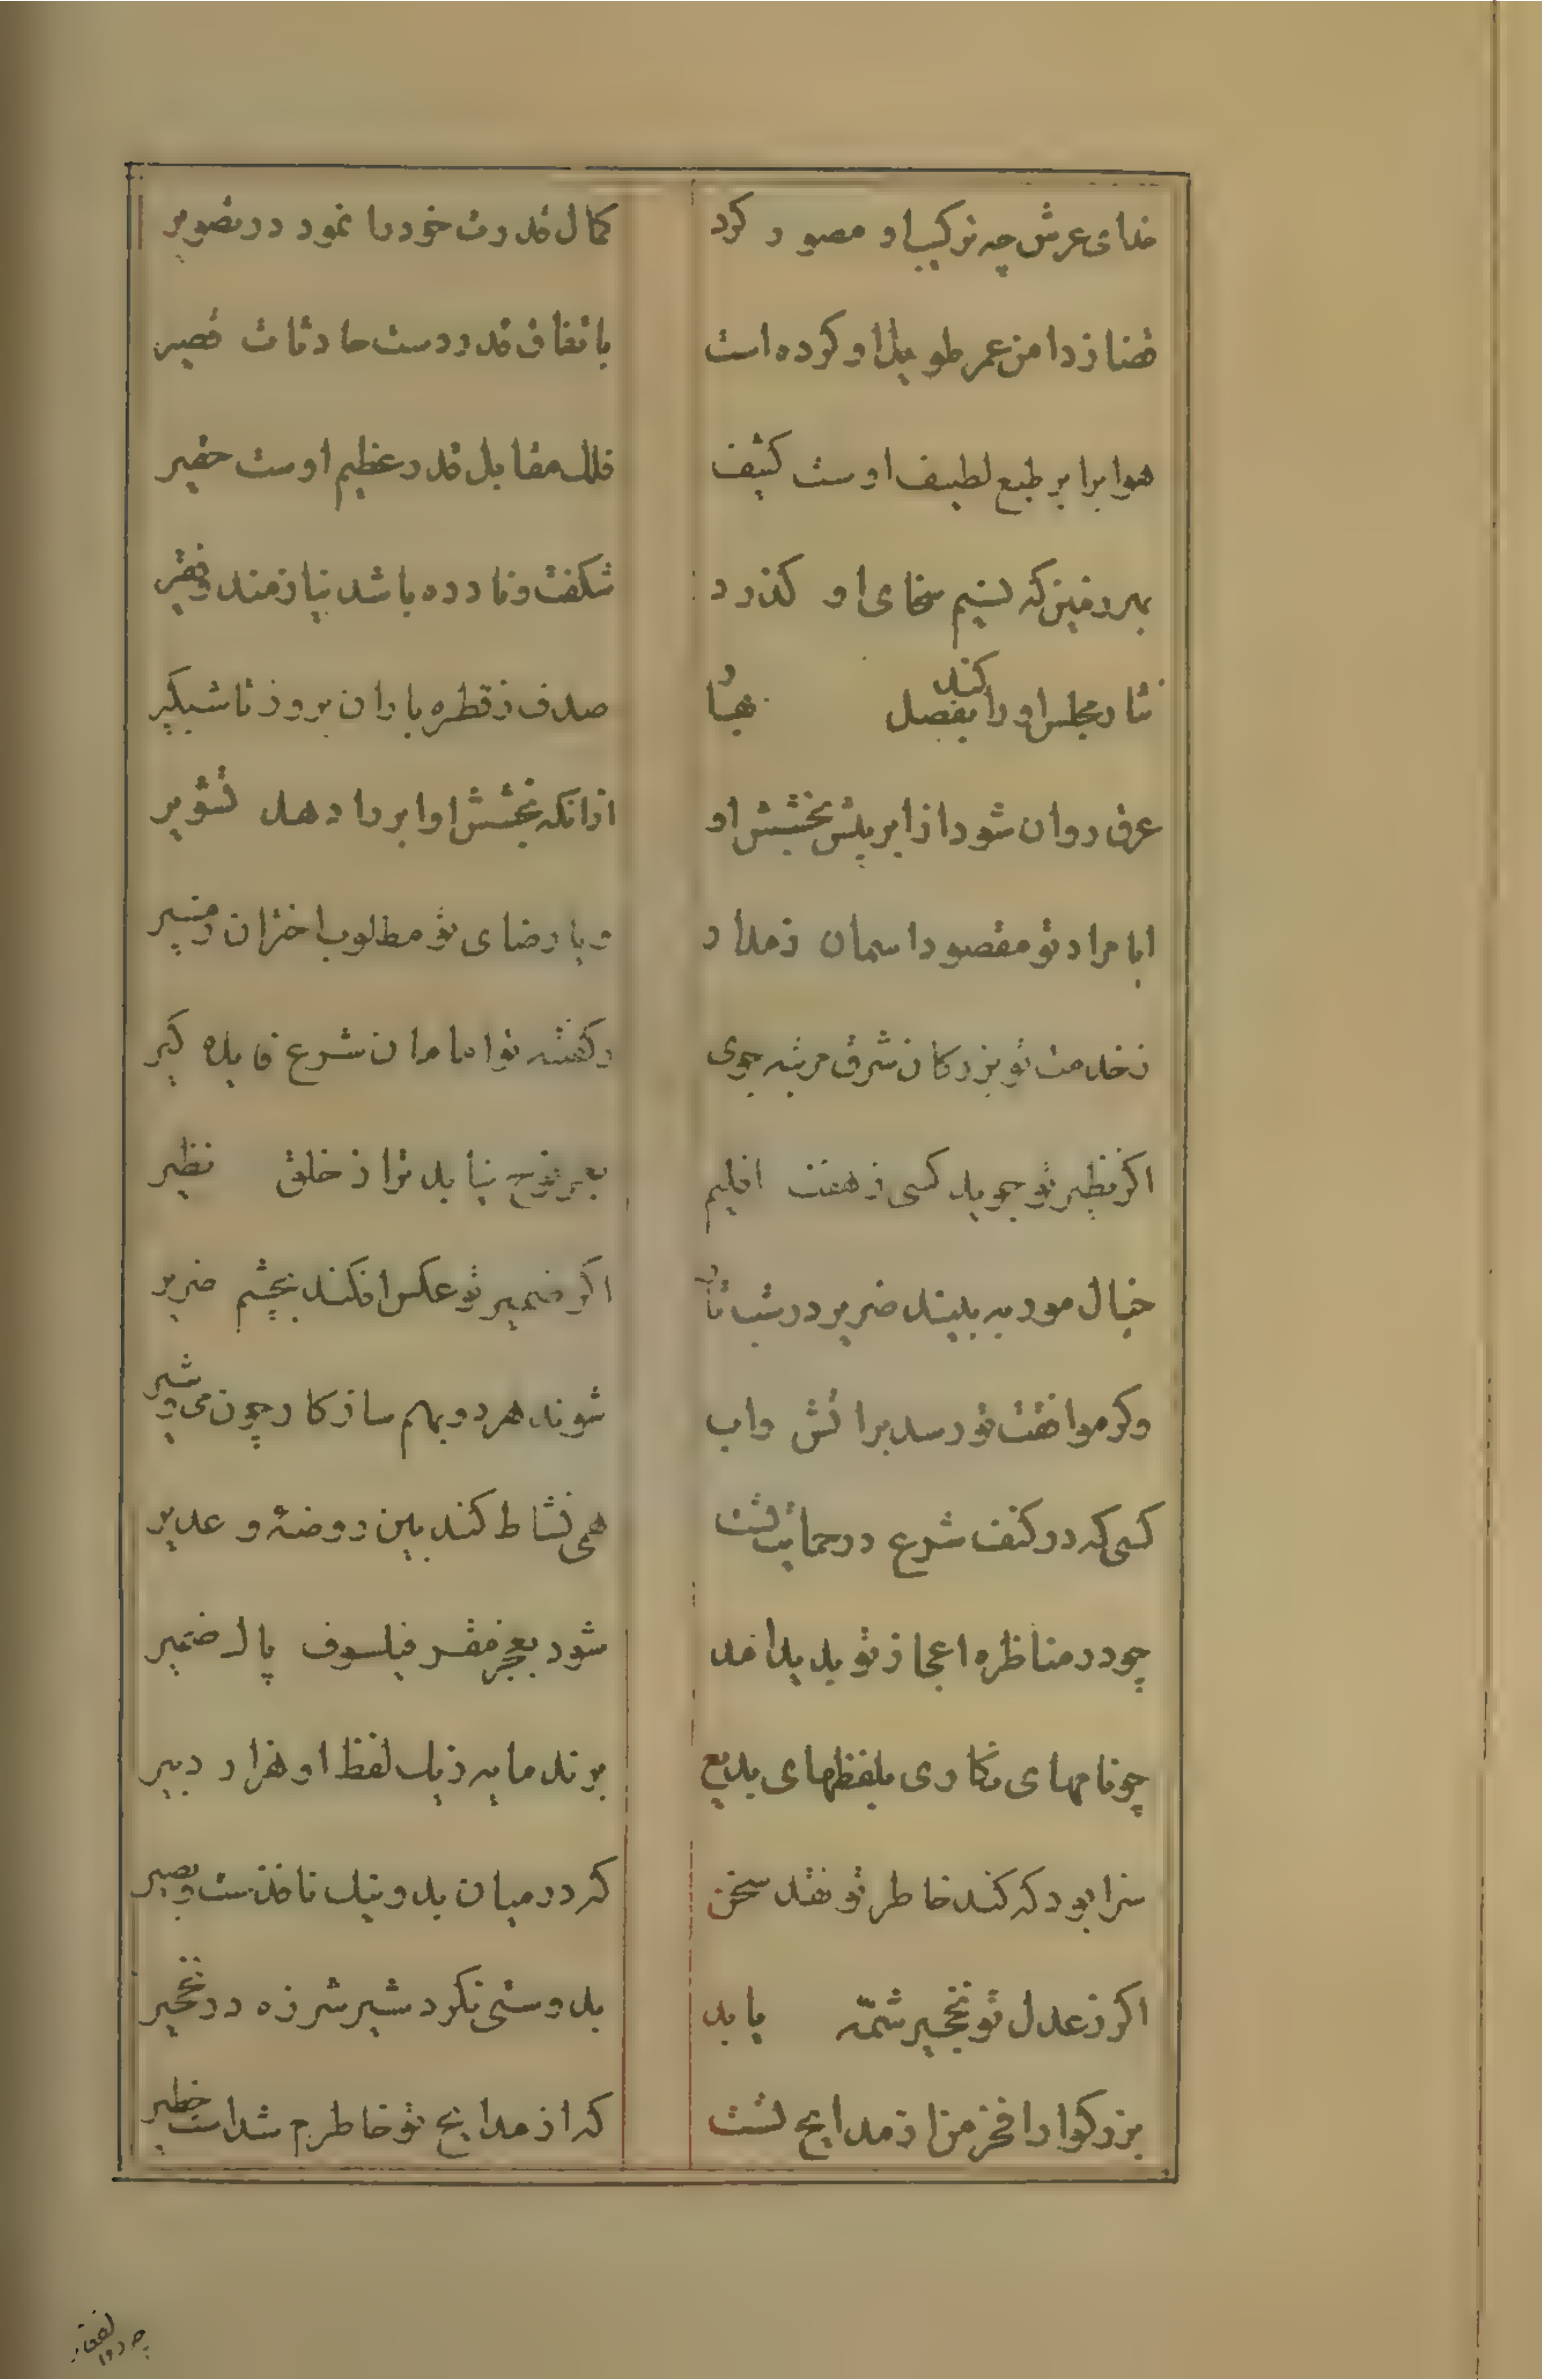 خدای عرش چه ترکیب او مصور کرد
کمال قدرت خود را نمود در تصویر
قضا ز دامن عمر طویل او کرده است
باتفاق قدر دست حادثات قصیر
هوا برابر طبع لطیف اوست کثیف
فلک مقابل قدر عظیم اوست حقیر
بهر زمین که نسیم سخای او کذرد
شکفت و نادره باشد نیازمند و فقیر
نثار مجلس او را کند بفصل
صدف ز قطره باران بروز تا شبکیر
عرق روان شود از ابر پیش بخشش او
از انکه بخشش او ابر را دهد تشویر
ایا مراد تو مقصود اسمان ز مدار
و یا رضای تو مطلوب اختران و منیر
ز خدمت تو بزرکان شرق مرتبه جوی
امامان شرع فایده کیر
اکر نظیر تو جوید کسی ز هفت اقلیم
نیابد ترا ز خلق نظیر
خیال مورچه بیند ضریر در شب تار
اکر ضمیر تو عکس افکند بچشم ضریر
وکر موافقت تو رسد براتش واب
شوند هر دو بهم سازکار چون می و شیر
کسی که در کنف شرع در حمایت تست
همی نشاط کند بین روضه و غدیر
چو در مناظره اعجاز تو پدید امد
شود بعجز مقر فیلسوف پاک ضمیر
چو نامهای نکاری بلفظهای بدیع
برند مایه ز یک لفظ او هزار دبیر
سزا بود که کند خاطر تو نقد سخن
که در میان بد و نیک ناقدست و بصیر
اکر ز عدل تو نخجیر شمّه یابد
بدوستی نکرد شیر شرزه در نخجیر
بزرکوارا فخر من از مدایح تست
که از مدایح تو خاطرم شداست خطیر